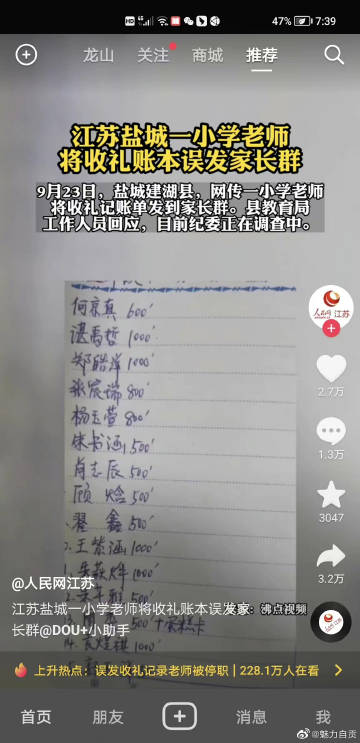 47% 7:39
龙山 关注 商城 推荐
江苏盐城一小学老师
将收礼账本误发家长群
9月23日，盐城建湖县，网传一小学老师
将收礼记账单发到家长群。县教育局
工作人员回应，目前纪委正在调查中。
600
1000
郑皓 1000
张宸瑞 800
杨玉萱 800
朱书涵 500
肖志辰 500
顾 焓 500
翟 鑫 500
王紫涵 1000
1000
500
500
1000
人民网 江苏
2.7万
1.3万
3047
3.2万
@人民网江苏
江苏盐城一小学老师将收礼账本误发家
长群@DOU+小助手
沸点视频
上升热点：误发收礼记录老师被停职 | 228.1万人在看
首页 朋友 消息 我
@魅力自贡